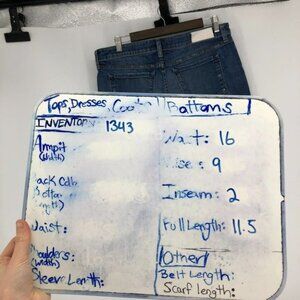 Tops, Dresses, Coats
INVENTORY 1343
Armpit
(Width)
Waist:
Shoulders:
(Width)
Sleeve Length:
Bottoms
Waist: 16
Rise: 9
Inseam: 2
Full Length: 11.5
Other
Belt Length:
Scarf length: